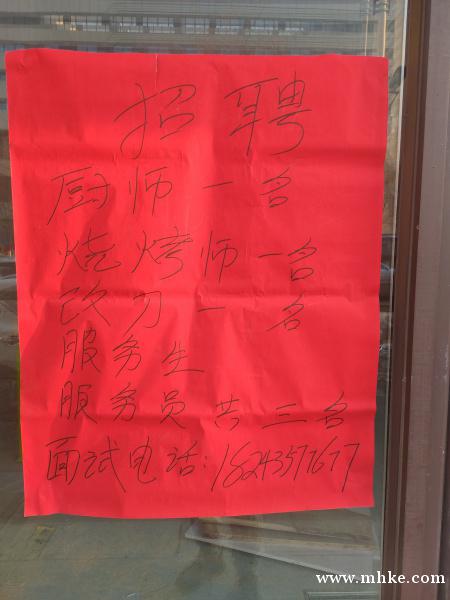 招聘
厨师一名
烧烤师一名
改刀一名
服务生
服务员共三名
面试电话:18243577677
www.mhke.com